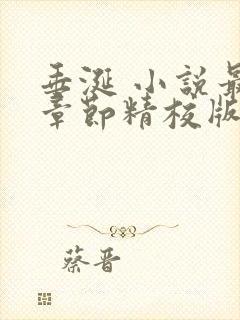 垂涎 小說最
章節精校版
蔡晋